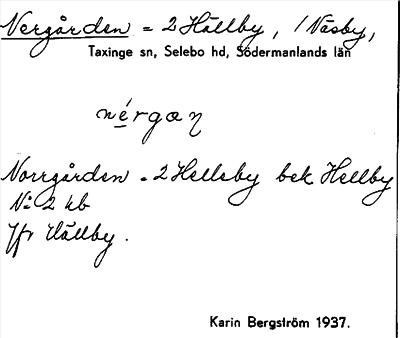 Nergården = 2 Hällby, 1 Näsby,
Taxinge sn, Selebo hd, Södermanlands län
nérgαη
Norrgården = 2 Helleby bek Hellby
N: 2 kb
Jfr Hällby.
Karin Bergström 1937.